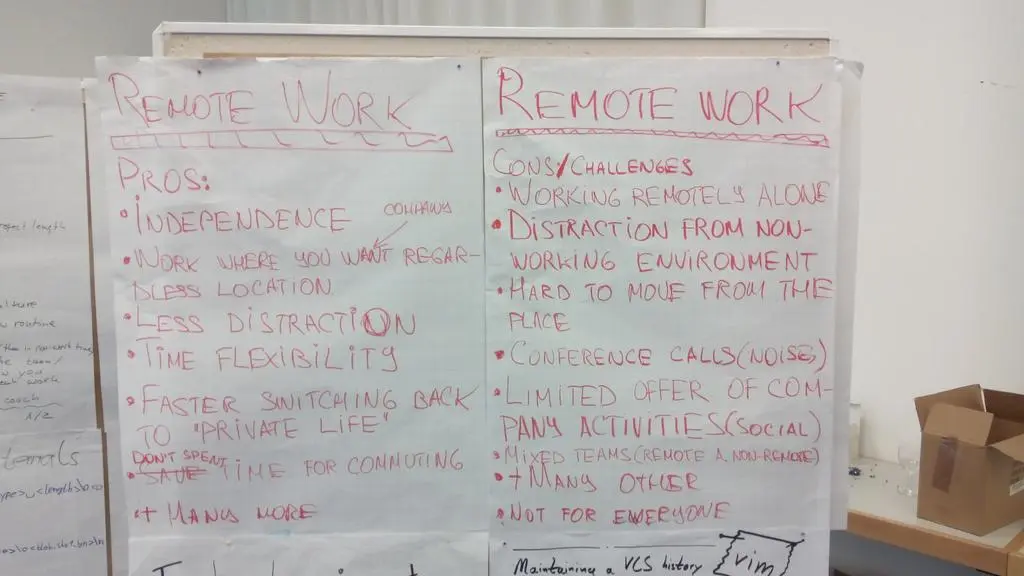 REMOTE WORK
PROS:
• INDEPENDENCE
COMPANY
• WORK WHERE YOU WANT REGAR-
DLESS LOCATION
• LESS DISTRACTION
• TIME FLEXIBILITY
• FASTER SWITCHING BACK
TO "PRIVATE LIFE"
DON'T SPENT
• SAVE TIME FOR COMMUTING
• + MANY MORE
REMOTE WORK
CONS/CHALLENGES
• WORKING REMOTELY ALONE
• DISTRACTION FROM NON-
WORKING ENVIRONMENT
• HARD TO MOVE FROM THE
PLACE
• CONFERENCE CALLS (NOISE)
• LIMITED OFFER OF COM-
PANY ACTIVITIES (SOCIAL)
• MIXED TEAMS (REMOTE A. NON-REMOTE)
• + MANY OTHER
• NOT FOR EVERYONE
Maintaining a VCS history
vim
length
routine
you
work
coach
1/2